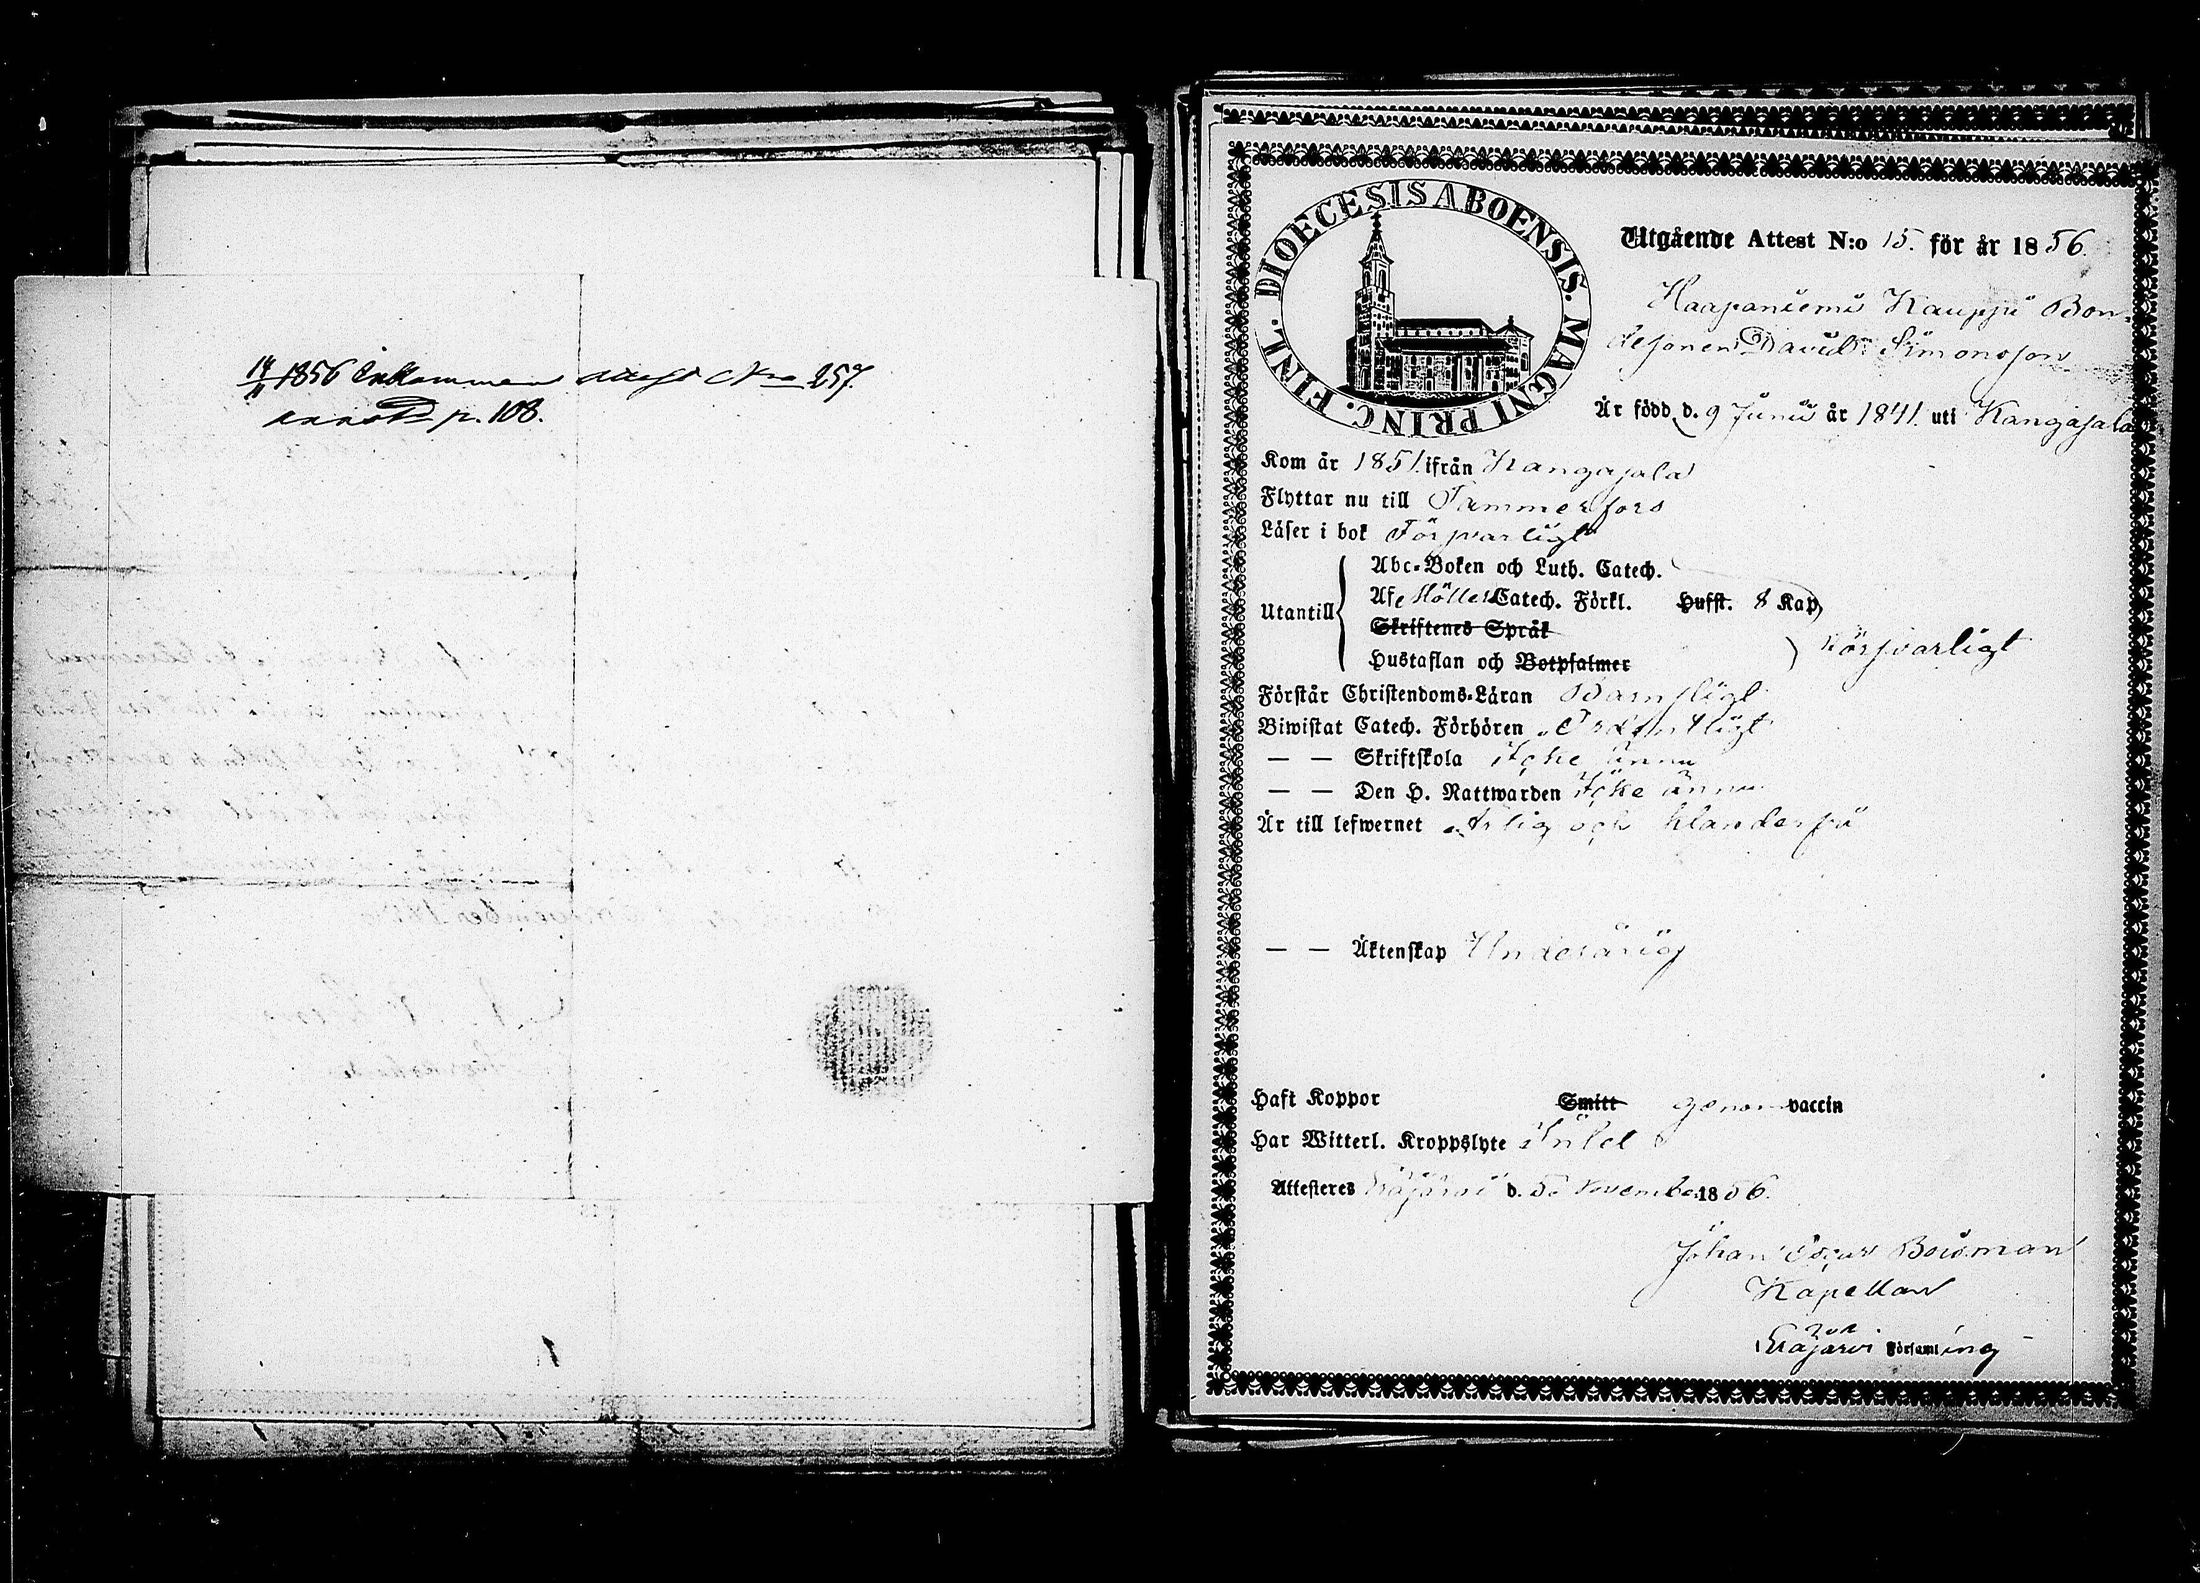 14/11 1856 Inkommen attest No 257.
annot. p. 108.
DIOECESIS ABOENSIS. MAGNI PRINC. FINL.
Utgående Attest N:o 15. för år 1856.
Haapaniemi Kauppi Bon-
desonen David Simonsson
Är född d. 9 Junii år 1841. uti Kangasala
Kom år 1851. ifrån Kangasala
Flyttar nu till Tammerfors
Läser i bok Försvarligt
Utantill
Abc-Boken och Luth. Catech.
Af Möllers Catech. Förkl. Husst. 8 Kap
Skriftenes Språk
Hustaflan och Botpsalmer
Försvarligt
Förstår Christendoms-Läran Barnsligt
Biwistat Catech. Förhören Ordentligt
— — Skriftskola Icke ännu
— — Den H. Nattwarden Icke ännu
Är till lefwernet Ärlig och klanderfri
— — Äktenskap Underårig
Haft Koppor Smitt genom vaccin
Har Witterl. Kroppslyte Intet
Attesteres Eräjärvi d. 5 November 1856.
Johan Oscar Bousman
Kapellan
Eräjärvi Församling